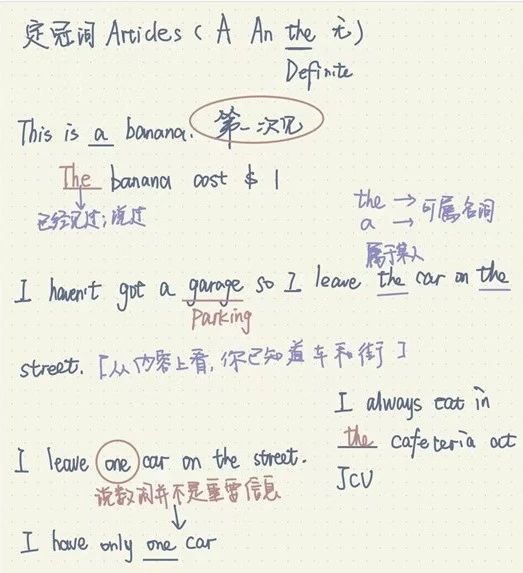 定冠词 Articles ( A An the 无 )
Definite
This is a banana. 第一次见
The banana cost $ 1
已经见过;说过
the → 可属名词
a →
属于某人
I haven't got a garage so I leave the car on the
Parking
street. [从内容上看,你已知道车和街]
I always eat in
the cafeteria at
JCU
I leave one car on the street.
说数词并不是重要信息
I have only one car